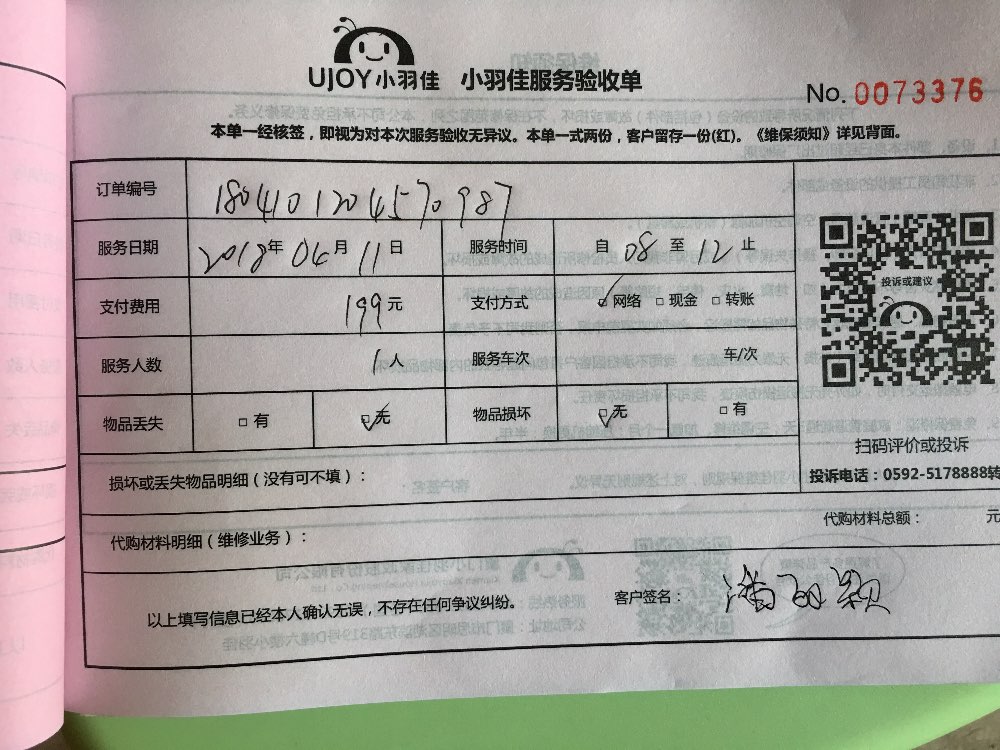 UJOY小羽佳 小羽佳服务验收单
No. 0073376
本单一经核签，即视为对本次服务验收无异议。本单一式两份，客户留存一份(红)。《维保须知》详见背面。
订单编号 1804101204570987
服务日期 2018年 04月 11日 服务时间 自 08 至 12 止
投诉或建议
支付费用 199元 支付方式 □网络 □现金 □转账
服务人数 1人 服务车次 车/次
物品丢失 □有 ☑无 物品损坏 ☑无 □有
扫码评价或投诉
损坏或丢失物品明细（没有可不填）：
投诉电话：0592-5178888转
代购材料总额： 元
代购材料明细（维修业务）：
以上填写信息已经本人确认无误，不存在任何争议纠纷。 客户签名：